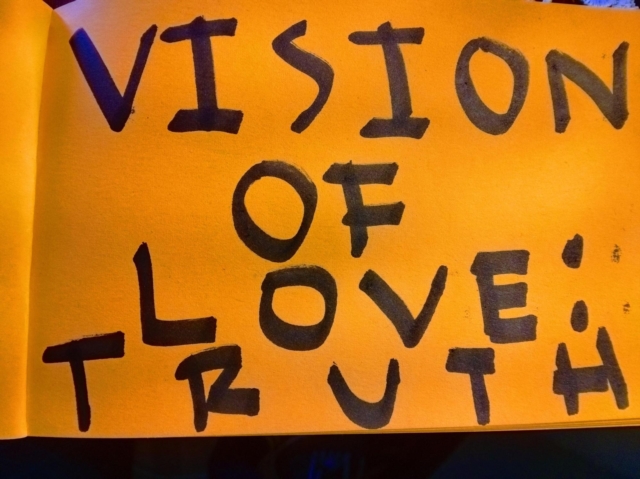 VISION
OF
LOVE:
TRUTH